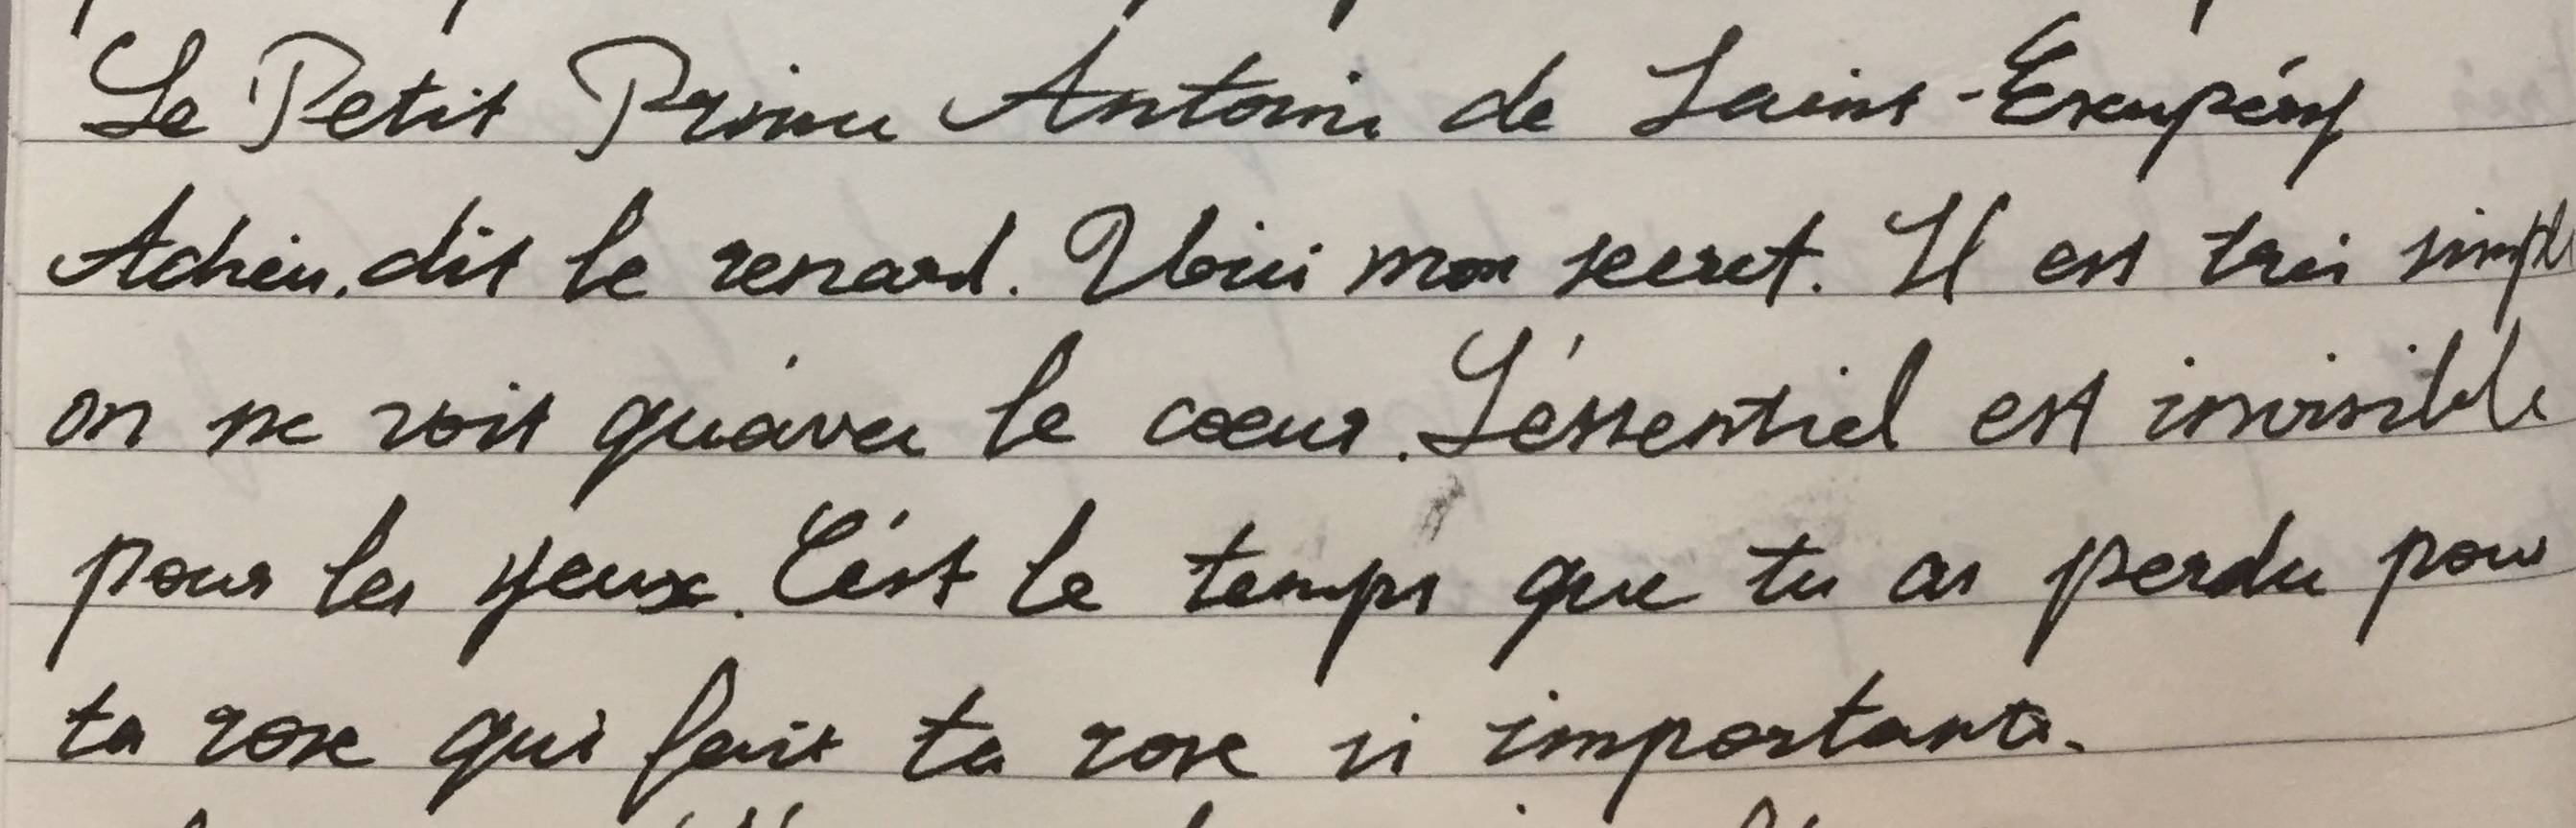 Le Petit Prince Antoine de Saint-Exupéry
Adieu, dit le renard. Voici mon secret. Il est très simple
on ne voit qu'avec le coeur. L'essentiel est invisible
pour les yeux. C'est le temps que tu as perdu pour
ta rose qui fait ta rose si importante.